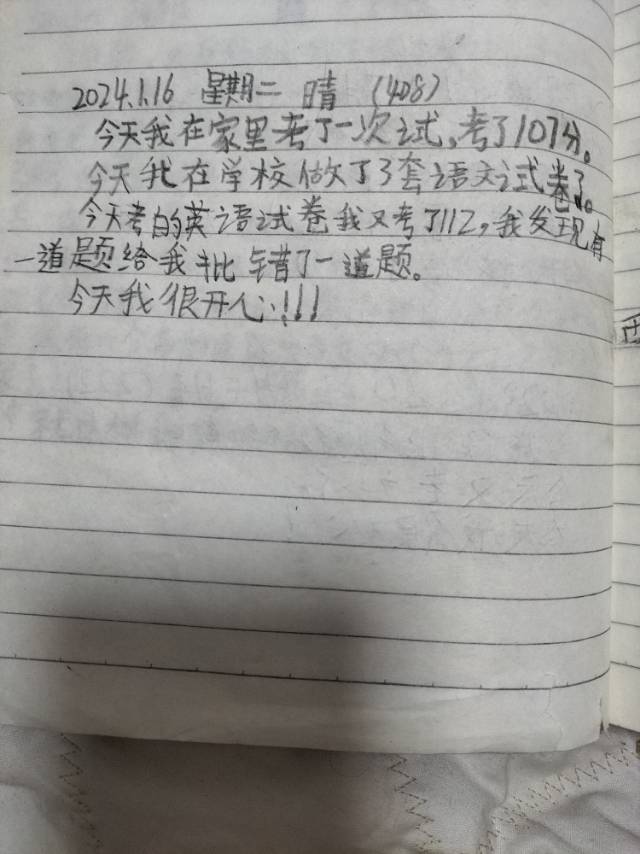 2024.1.16 星期二 晴 (408)
今天我在家里考了一次试,考了107分。
今天我在学校做了3套语文试卷了。
今天考的英语试卷我又考了112,我发现有
一道题给我批错了一道题。
今天我很开心!!!